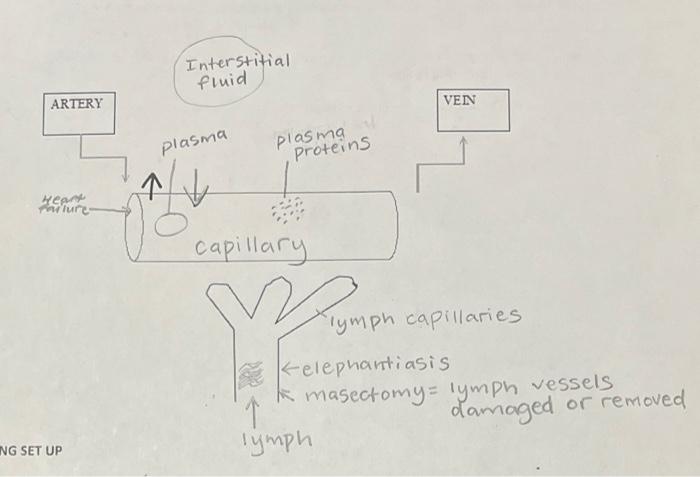 Interstitial
fluid
ARTERY
VEIN
plasma
plasma
proteins
Heart
failure
capillary
lymph capillaries
elephantiasis
masectomy = lymph vessels
damaged or removed
lymph
NG SET UP